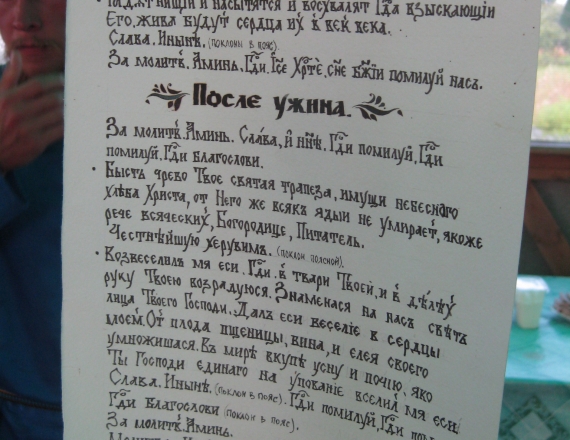 нищии и насытятся и восхвалят Гдⷭа взыскающїи
Его, жива будут сердца их в век века.
Слава. Инынѣ. (поклоны в пояс).
За молитв. Аминь. Гдⷭи. Іⷭсе Хрⷭте, сне Бжїи помилуй насъ.
После ужина.
За молитв. Аминь. Слава, и ннѣ. Гдⷭи помилуй, Гдⷭи
помилуй. Гдⷭи благослови.
• Бысть чрево Твое святая трапеза, имущи небеснаго
хлѣба Христа, от Него же всякъ ядыи не умирает, якоже
рече всяческих, Богородице, Питатель.
Честнѣйшую херувимъ. (поклон поясной).
• Возвеселилъ мя еси, Гдⷭи, в твари Твоей, и в дѣлѣх
руку Твоею возрадуюся. Знаменася на насъ свѣтъ
лица Твоего Господи. Далъ еси веселіе в сердцы
моемъ. От плода пшеницы, вина, и елея своего
умножишася. Въ мирѣ вкупѣ усну и почїю, яко
Ты Господи единаго на упованіе вселил мя еси.
Слава. Инынѣ. (поклон в пояс). Гдⷭи помилуй, Гдⷭи
Гдⷭи благослови (поклон в пояс).
За молитв. Аминь.